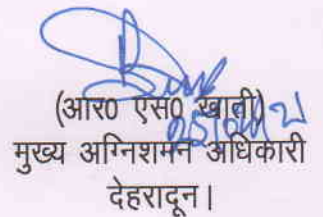 (आर0 एस0 खाती)
मुख्य अग्निशमन अधिकारी
देहरादून।